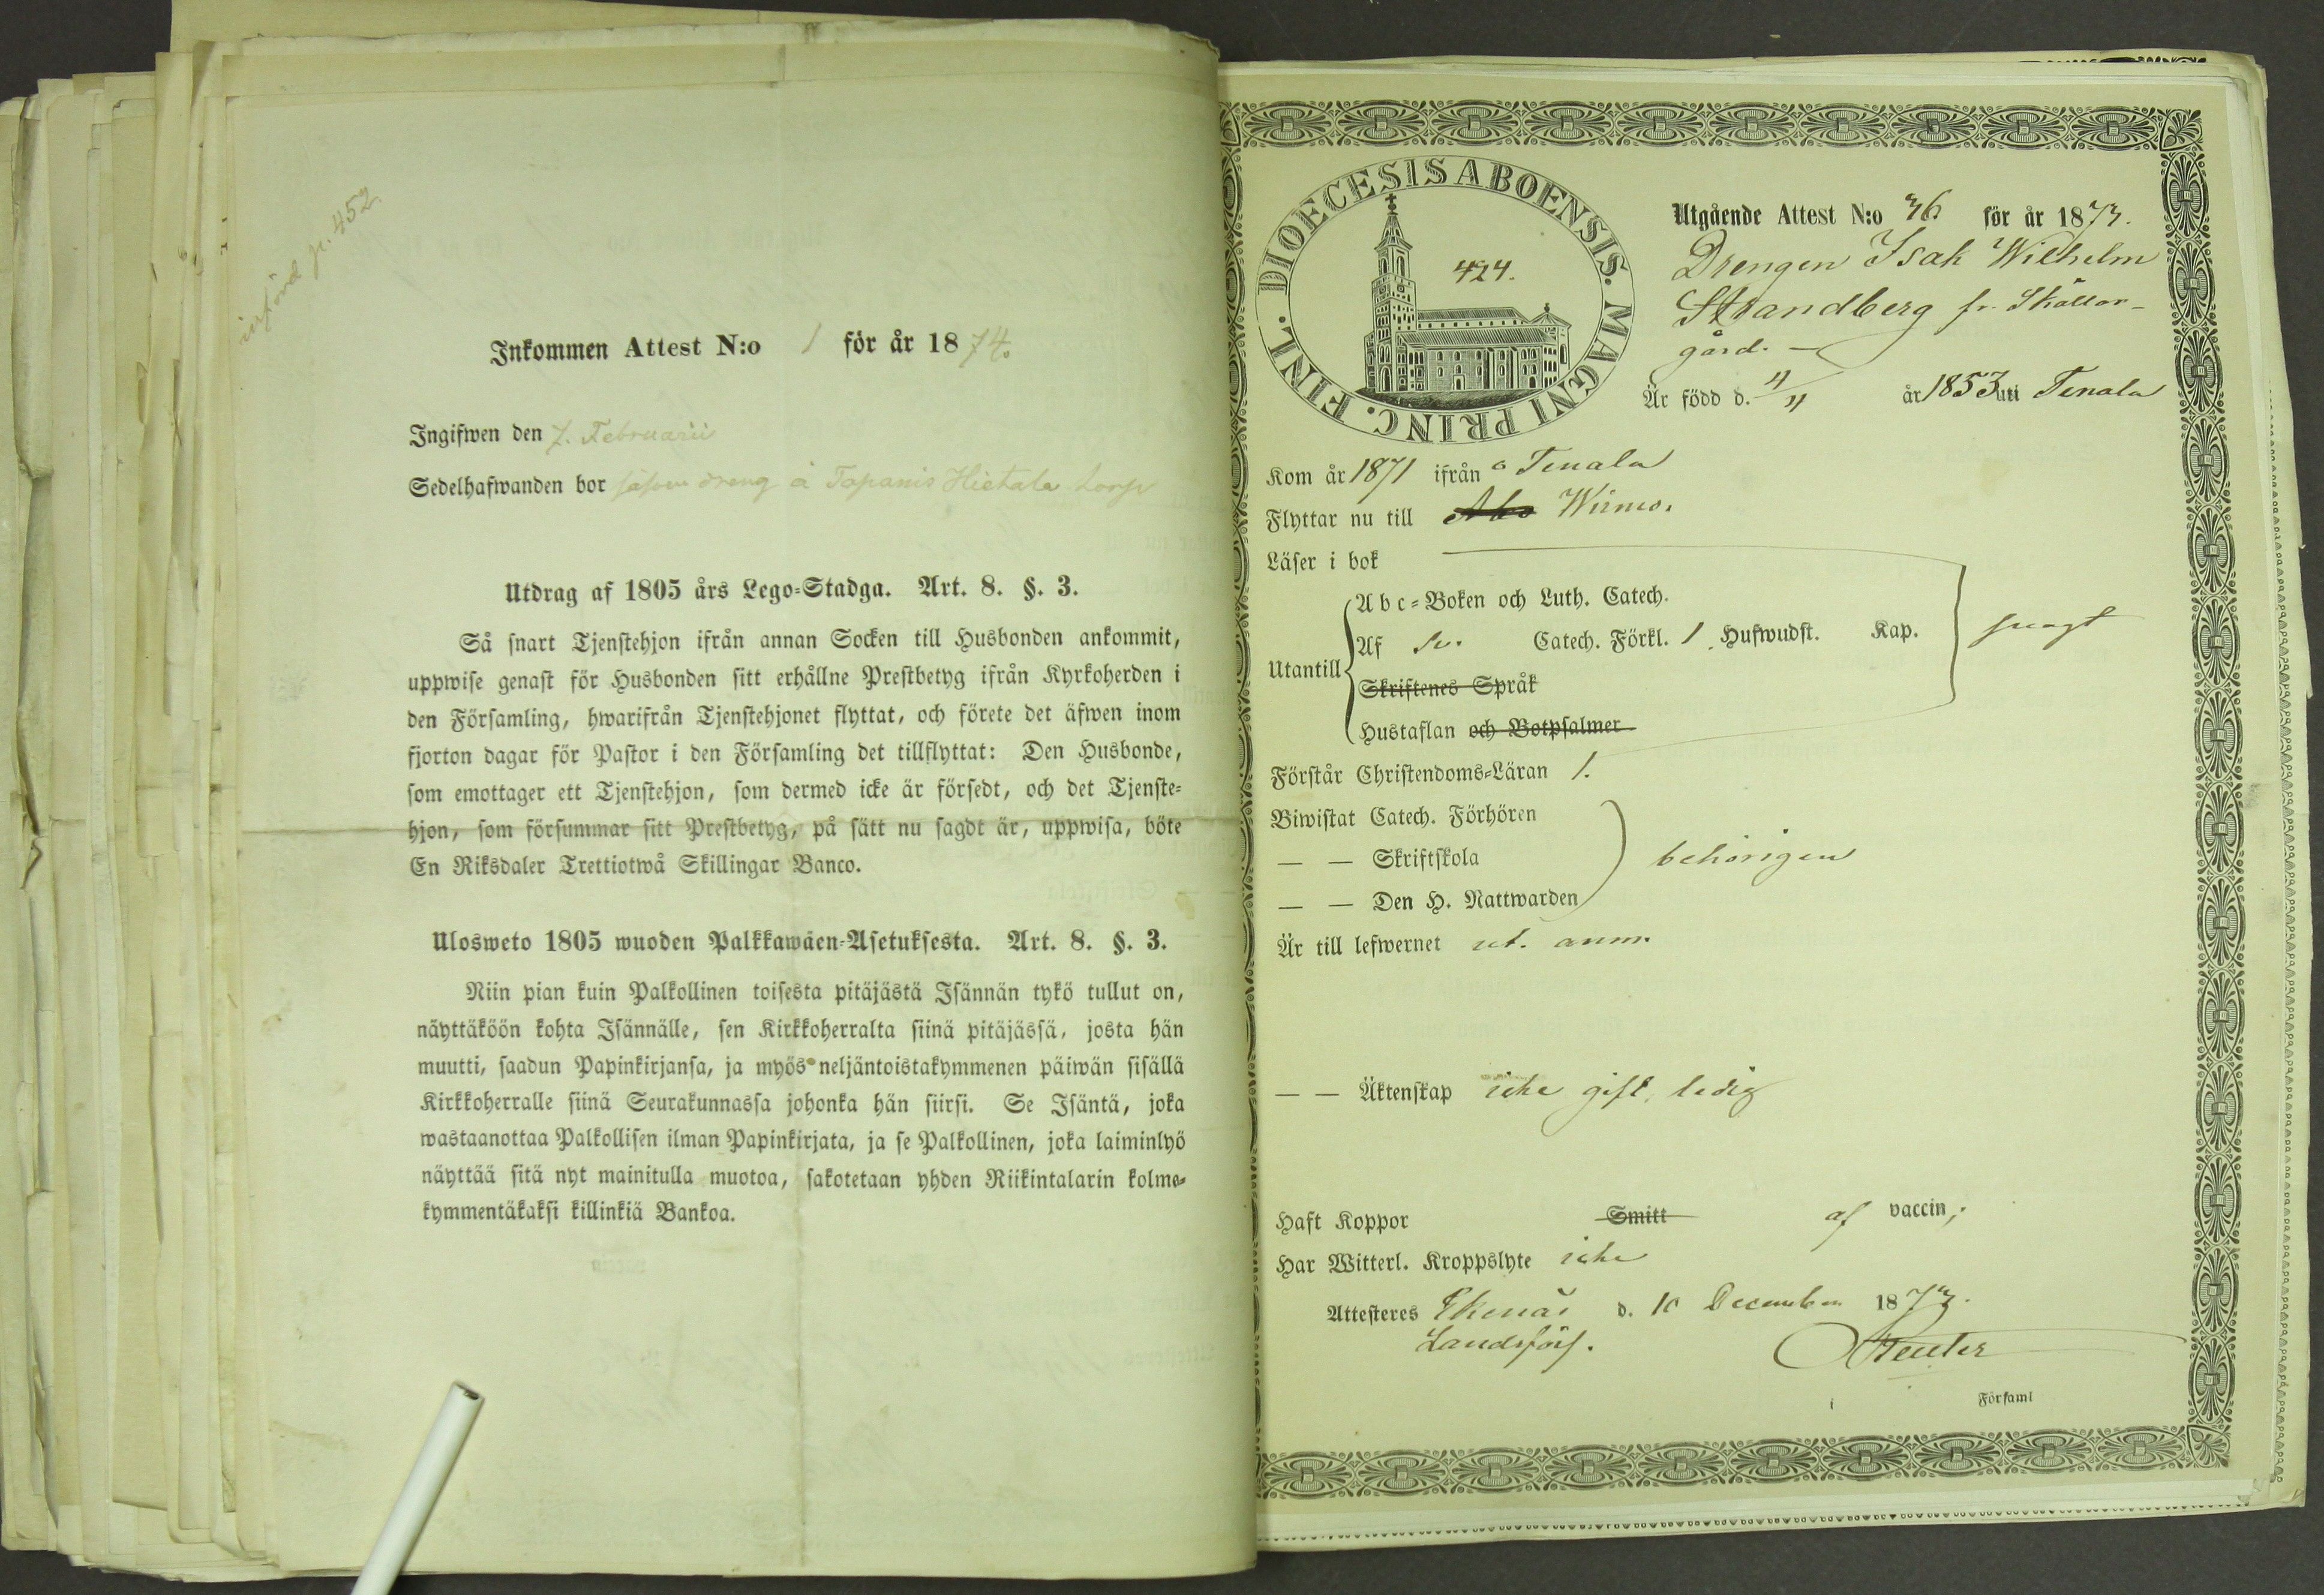 införd p. 452
Inkommen Attest N:o 1 för år 1874.
Ingifwen den 7. Februarii
Sedelhafwanden bor såsom dreng å Tapanis Hietala torp
Utdrag af 1805 års Lego-Stadga. Art. 8. §. 3.
Så snart Tjenstehjon ifrån annan Socken till Husbonden ankommit,
uppwise genast för Husbonden sitt erhållne Prestbetyg ifrån Kyrkoherden i
den Församling, hwarifrån Tjenstehjonet flyttat, och förete det äfwen inom
fjorton dagar för Pastor i den Församling det tillflyttat: Den Husbonde,
som emottager ett Tjenstehjon, som dermed icke är försedt, och det Tjenste-
hjon, som försummar sitt Prestbetyg, på sätt nu sagdt är, uppwisa, böte
En Riksdaler Trettiotwå Skillingar Banco.
Ulosweto 1805 wuoden Palkkawäen-Asetuksesta. Art. 8. §. 3.
Niin pian kuin Palkollinen toisesta pitäjästä Isännän tykö tullut on,
näyttäköön kohta Isännälle, sen Kirkkoherralta siinä pitäjässä, josta hän
muutti, saadun Papinkirjansa, ja myös neljäntoistakymmenen päiwän sisällä
Kirkkoherralle siinä Seurakunnassa johonka hän siirsi. Se Isäntä, joka
wastaanottaa Palkollisen ilman Papinkirjata, ja se Palkollinen, joka laiminlyö
näyttää sitä nyt mainitulla muotoa, sakotetaan yhden Riikintalarin kolme-
kymmentäkaksi killinkiä Bankoa.
DIOECESIS ABOENSIS. MAGNI PRINC. FINL.
424.
Utgående Attest N:o 36 för år 1873.
Drengen Isak Wilhelm
Strandberg fr. Skällar-
gård.
Är född d. 4/4 år 1853 uti Tenala
Kom år 1871 ifrån Tenala
Flyttar nu till Abo Wirmo.
Läser i bok
Abc-Boken och Luth. Catech.
Af sv. Catech. Förkl. 1 Hufwudst. Kap.
Utantill
Skriftenes Språk
Hustaflan och Botpsalmer
swagt
Förstår Christendoms-Läran 1.
Biwistat Catech. Förhören
— — Skriftskola behörigen
— — Den H. Nattwarden
Är till lefwernet ut. anm.
— — Äktenskap icke gift, ledig
Haft Koppor Smitt af vaccin;
Har Witterl. Kroppslyte icke
Attesteres Ekenäs d. 10 December 1873.
Landsförs. Reuter
i Församl